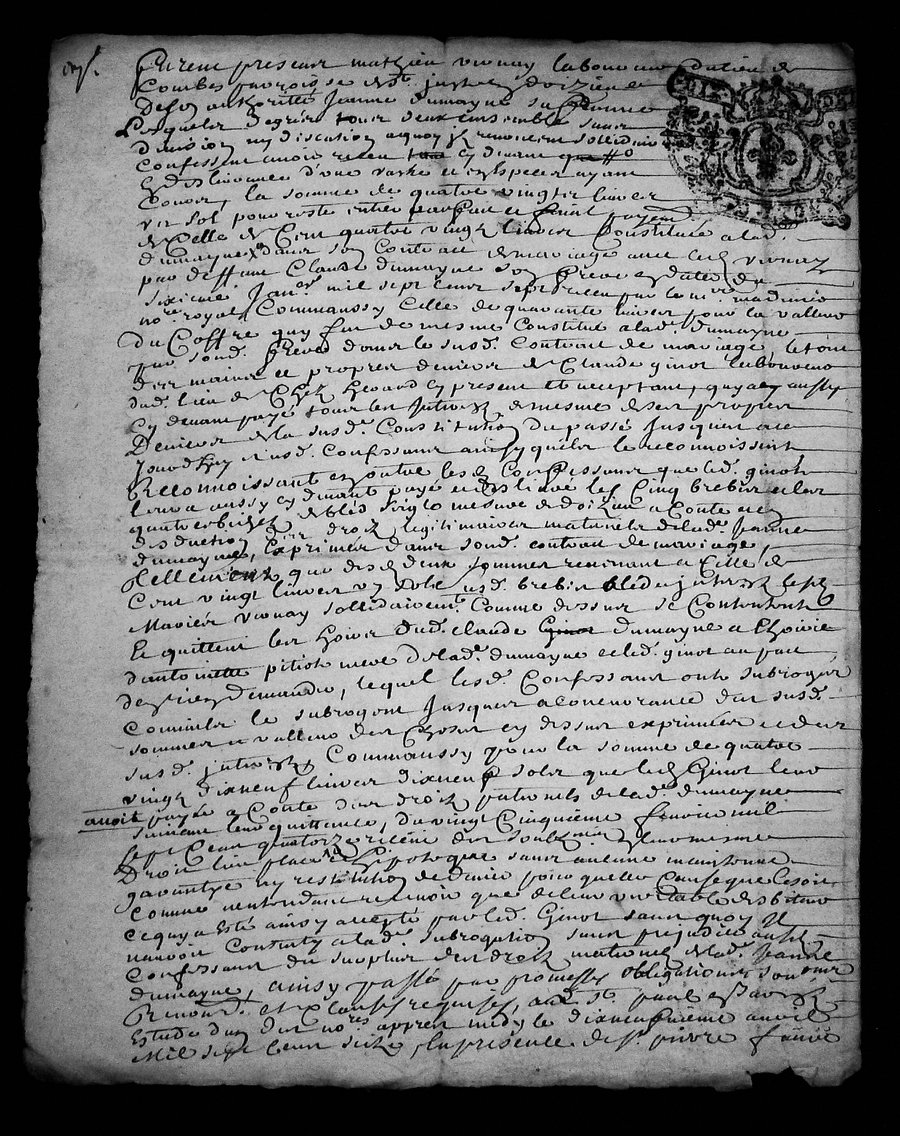 furent presents mathieu vernay laboureur du lieu de
Combes parroisse de St. just les doizieu et
de son authorité Jeanne dumayne sa femme
Lesquels de gré tous deux ensemble sans
division ny discution a quoy ils renoncent sollidairement
Confessent avoir receu cy devant
et deslivrance d'une vache et especes ayant
Cours, la somme de quatre vingts livres
dix sol pour reste entier parfait et final payement
de Celle de Cent quatre vingt livres Constitué a lad.
dumayne dans son Contrat de mariage avec led. Vernay
par deffunt Claude dumayne son frere en datte du
sixieme Janer mil sept cens sept receu par le me.
nore. royal, Commaussy Celle de quarante livres pour la valleur
du Coffre quy fut de mesme Constitué a lad. dumayne
par sond. frere dans le susd. Contrat de mariage, le tout
des mains et propres deniers de Claude ginot laboureur
dud. lieu de Chez present et acceptant, quy a aussy
Cy devant payé tous les jnterests de mesme de ses propres
Deniers de la susd. Constitution du passé Jusques a ce
Jourdhuy lesd. Confessants ainsy qu'ils le reconnoissent
Reconnoissant en outre lesd. Confessants que led. ginot
leur a aussy cy devant payé et deslivré les Cinq brebis et les
quatre bichets de bled seigle mesure de doizieu a Conte et
desduction des droits legitimaires maternels de lad. Jeanne
dumayne, Exprimés dans sond. contrat de mariage,
Tellement que desd. deux sommes revenant a Celle de
Cent vingt livres dix sols susd. brebis bled et jnterests lesd.
Mariés vernay sollidairement. Comme dessus se Contentent
Et quittent les hoirs dud. claude dumayne et l'hoirie
d'antoinette pitiot mere de lad. dumayne et led. ginot au pact
de rien demander, lequel lesd. Confessants ont subrogé
Comme ils le subrogent Jusques a Concurrance des susd.
sommes et valleur des Choses cy dessus exprimées et des
susd. jnterests, Commaussy pour la somme de quatre
vingt dixneuf livres dixneuf sols que led. Ginot leur
avoit payée a Conte des droits paternels de lad. dumayne
suivant leur quittance, du vingt Cinquieme fevrier mil
sept Cent quatorze receu du soubsigné leur mesme
Droit lieu place et hipoteque sans aucune maintenue
garantye ny restitution de deniers pour quelle Cause que ce soit
Comme n'entendant recevoir que de leur veritable debiteur
Ce quy a esté ainsy accepté par led. Ginot sans quoy Il
n'auroit Contenty a lad. subrogation sans prejudice ausd.
Confessants du surplus des droits maternels de lad. Jeanne
dumayne, ainsy passé par promesses obligations soumons.
Renond. et Clauses requises, au St. paul en Jarest
Estude dud. nore. appres midy le dixneufvieme avril
Mil sept Cens seize, En presence de sr. pierre favier